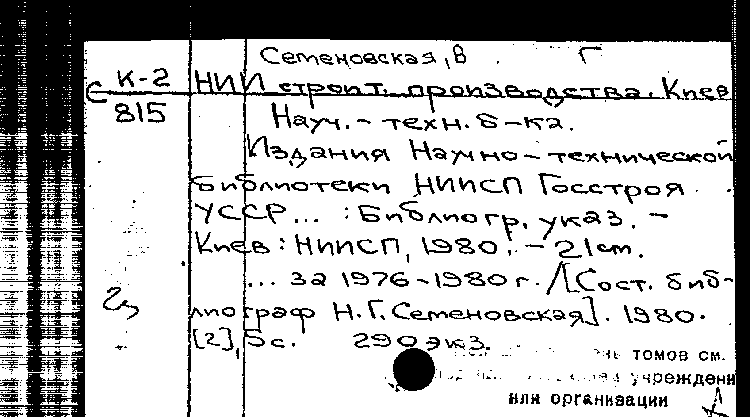 Семеновская, В Г
К-2 НИИ строит. производства. Киев
С 815 Науч.-техн. б-ка.
Издания Научно-технической
библиотеки НИИСП Госстроя
УССР... : Библиогр. указ. -
Киев : НИИСП, 1980. - 21 см.
... за 1976-1980 г. /[Сост. биб-
лиограф Н.Г. Семеновская]. 1980.
[2], 5 с. 290 экз.
томов см.
учреждени
или организации